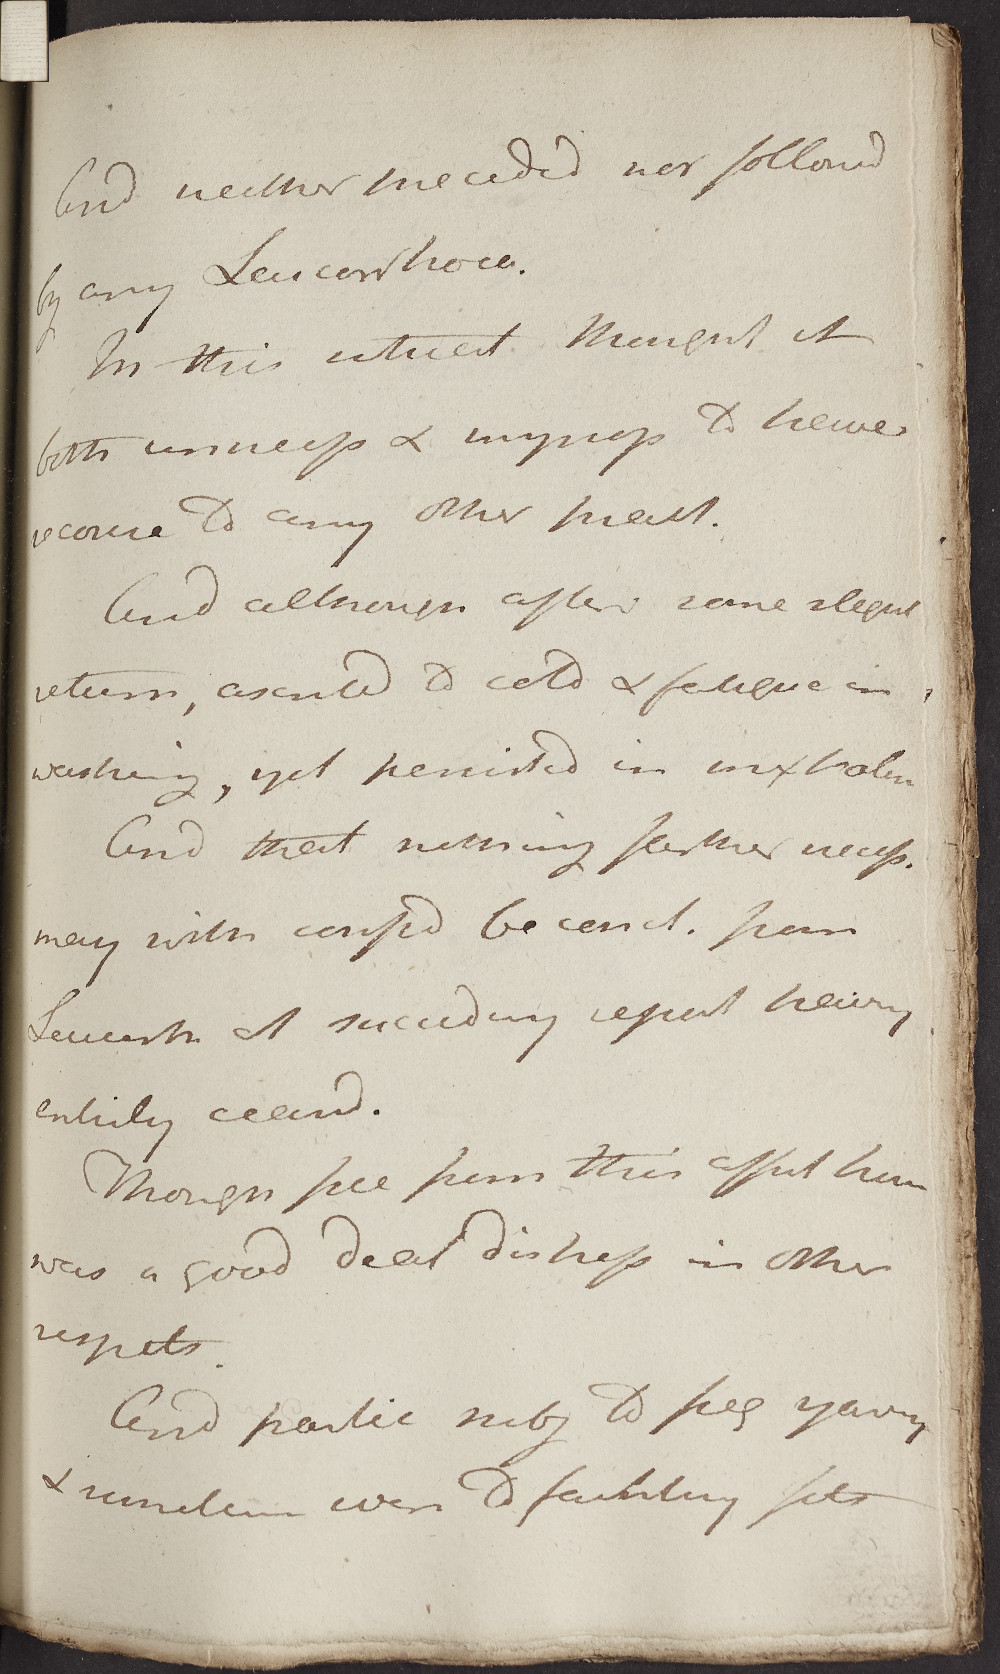 And neither preceded nor followd
by any Leucorrhoea.
In this situat. thought it
both unnecess & improp to have
recourse to any other pract.
And although after some slight
return, ascribd to cold & fatigue in
washing, yet persisted in
And that nothing farther necess.
may with confid be concl. from
Leucorrh at succeeding report having
entirely ceasd.
Though free from this affect however
was a good deal distress in other
respects.
And partic subj to freq
& sometim even to fainting fits